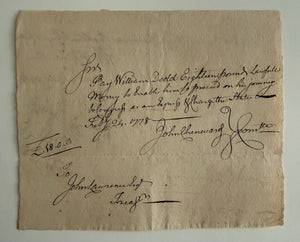 Sir
Pay William Dodd Eighteen pound Lawfull
Money to Enable him to proceed on his journey
to Congress as an Express & Charge the State
Feby 24. 1778
£18.0.0
John Chenward } Comtte
To
John Lawrence Esq
Treasr